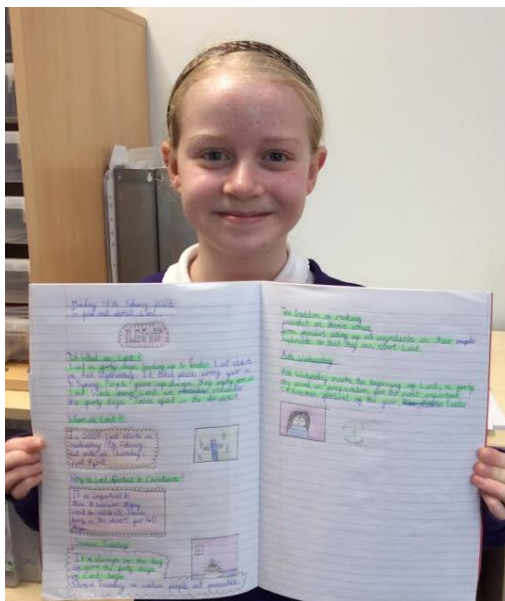 Monday 16th Febuary 2026
to find out about Lent.
LENT
What is Lent?
Lent is forty days leading up to Easter. Lent starts
on Ash Wednesday. It takes place every year in
Spring. People give up things they enjoy
While doing Lent
the forty days Jesus spent in the desert.
When is Lent?
In 2026 Lent starts on
Wednesday 18th Febuary
and ends on Thursday
2nd April.
Why is Lent important to Christians?
It is important to
them to because they
want to celebrate Jesus
being in the desert for 40
days.
Shrove Tuesday
It is always on the day
before the forty days
of Lent begin.
Shrove Tuesday is when people eat pancakes.
The tradition of making
pancakes on Shrove
from families using up all ingredients in their
cupboards so that they can start Lent.
Ash Wednesday
Ash Wednesday marks the beginning of Lent, a forty
day period in preparation for the most important
Christian festival of the year, Easter